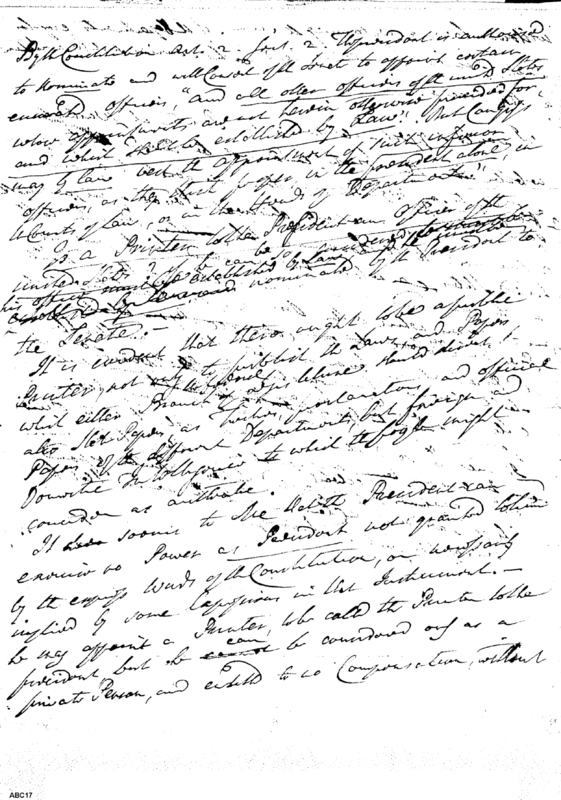 By th Constitution Art. 2. Sect. 2. The president is authorised
to nominate and with Consent of the Senate to appoint certain
officers, "and all other officers of the united States
whose appointments are not herein otherwise provided for,
and which shall be established by Law". But Congress
may by law vest the appointment of such inferior
officers, as they think proper, in the president alone, in
th Courts of Law, or in the Heads of Departments".
Is a Printer to the President an officer of the
united States? if he can be so considered
his office must be established by Law and
nominated by the President to
the Senate.—
It is evident that there ought to be a public
Printer, not only to publish the Laws, and Papers
which either Branch of the Legislature should direct,
also State Papers, as Treaties, proclamations, and official
Papers of the different Departments, both foreign and
Domestic to which the might
consider as authentic.
It seems to me that the President can
exercise no Power as President not granted to him
by the express words of the Constitution, or necessarily
implied by some expressions in that Instrument.—
he may appoint a Printer, to be called the Printer to the
president but he can be considered only as a
private Person, and entitled to no Compensation, without
ABC17